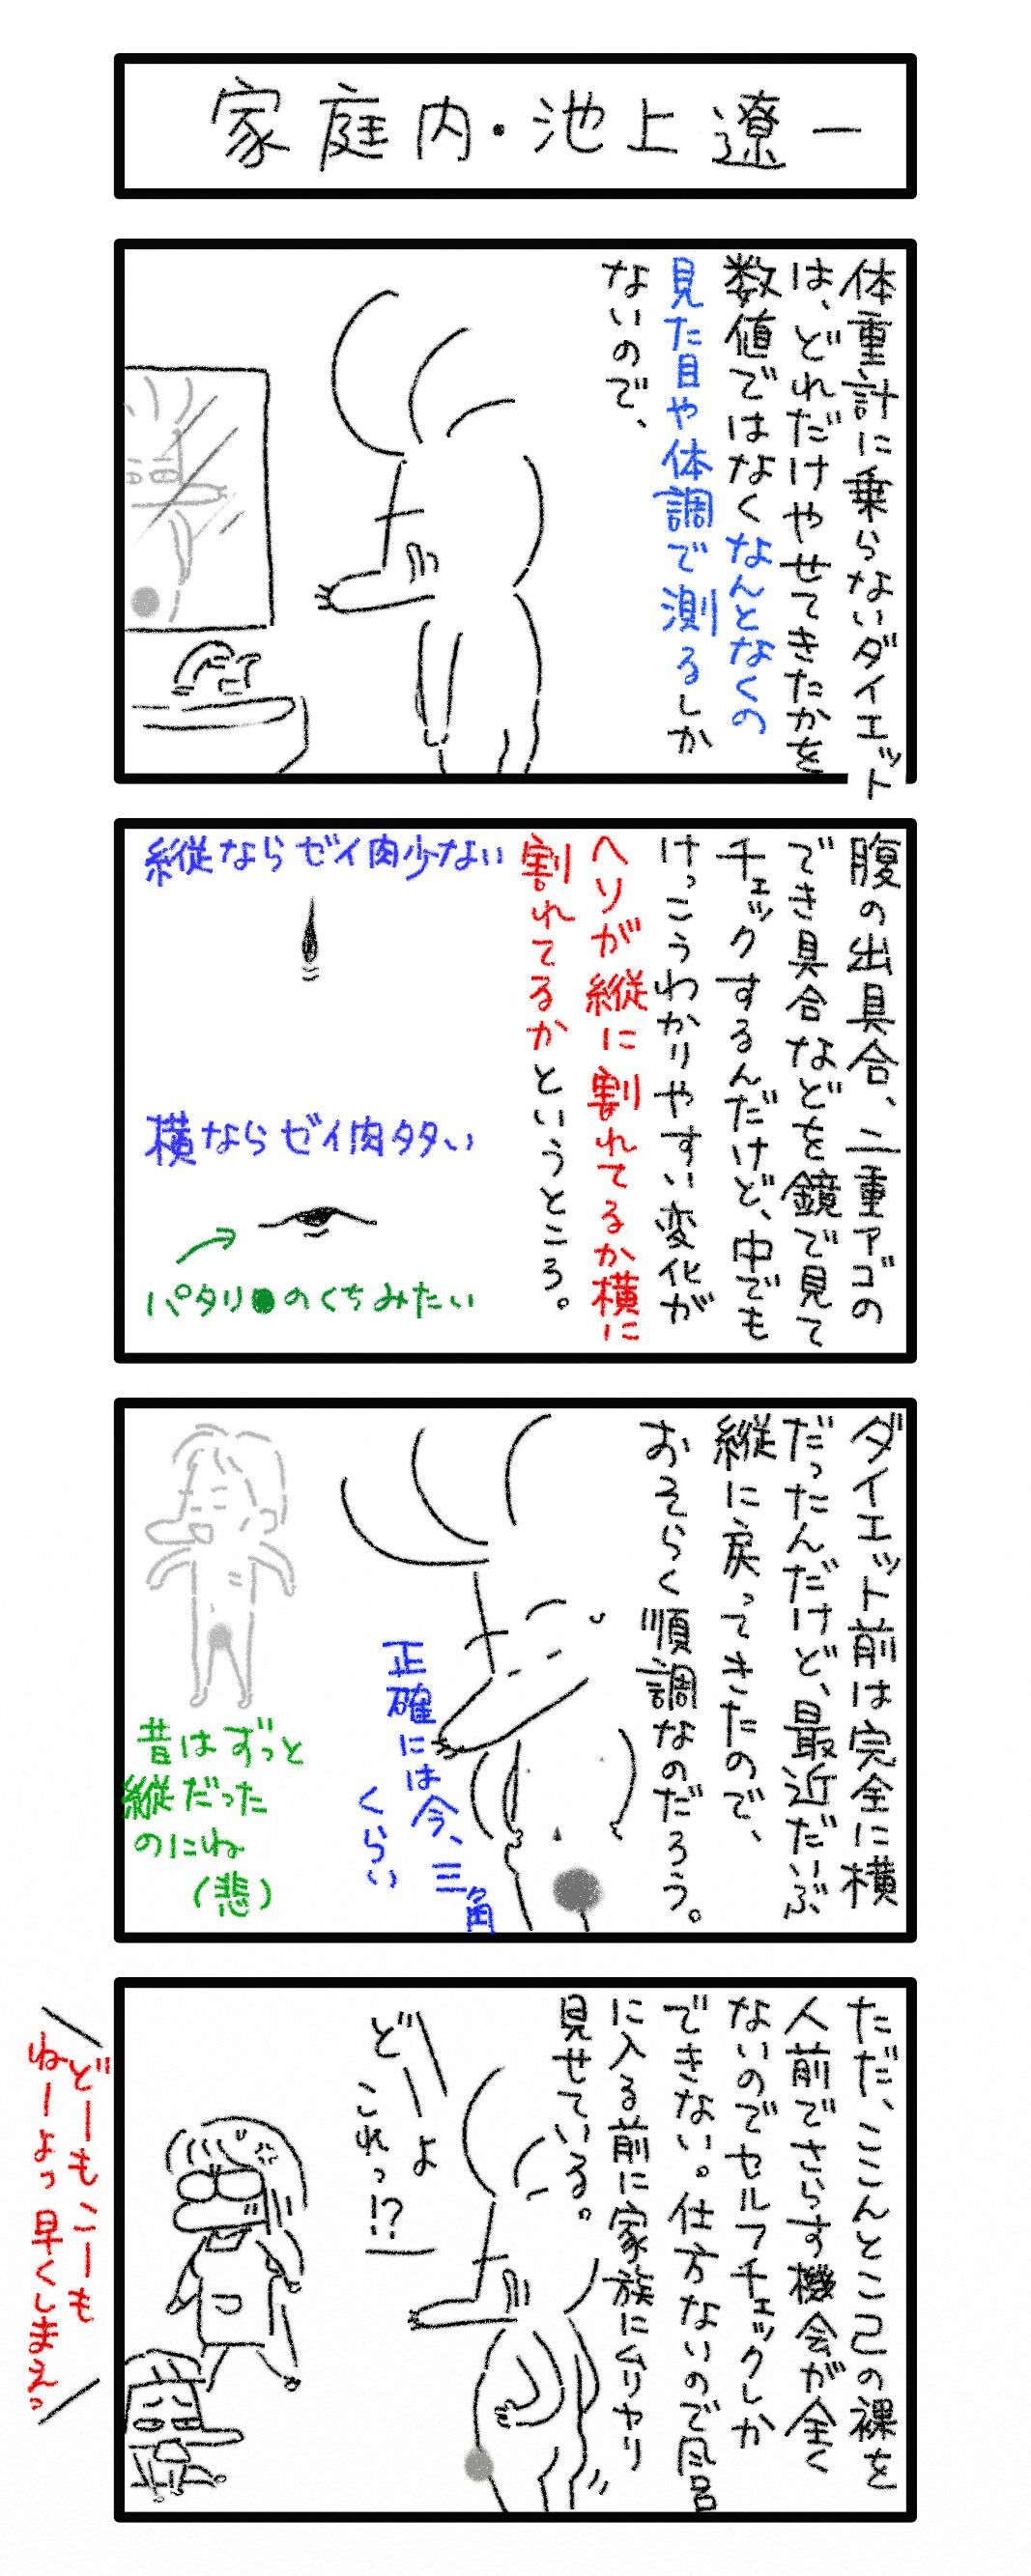 家庭内・池上遼一
体重計に乗らないダイエット
は、どれだけやせてきたかを
数値ではなくなんとなくの
見た目や体調で測るしか
ないので、
腹の出具合、二重アゴの
でき具合などを鏡で見て
チェックするんだけど、中でも
けっこうわかりやすい変化が
ヘソが縦に割れてるか横に
割れてるかというところ。
縦ならゼイ肉少ない
横ならゼイ肉多い
パタリ●のくちみたい
ダイエット前は完全に横
だったんだけど、最近だいぶ
縦に戻ってきたので、
おそらく順調なのだろう。
正確には今、三角
くらい
昔はずっと
縦だった
のにね
(悲)
ただ、ここんとこ己の裸を
人前でさらす機会が全く
ないのでセルフチェックしか
できない。仕方ないので風呂
に入る前に家族にムリヤリ
見せている。
どーよ
これっ!?
どーもこーも
ねーよっ早くしまえっ